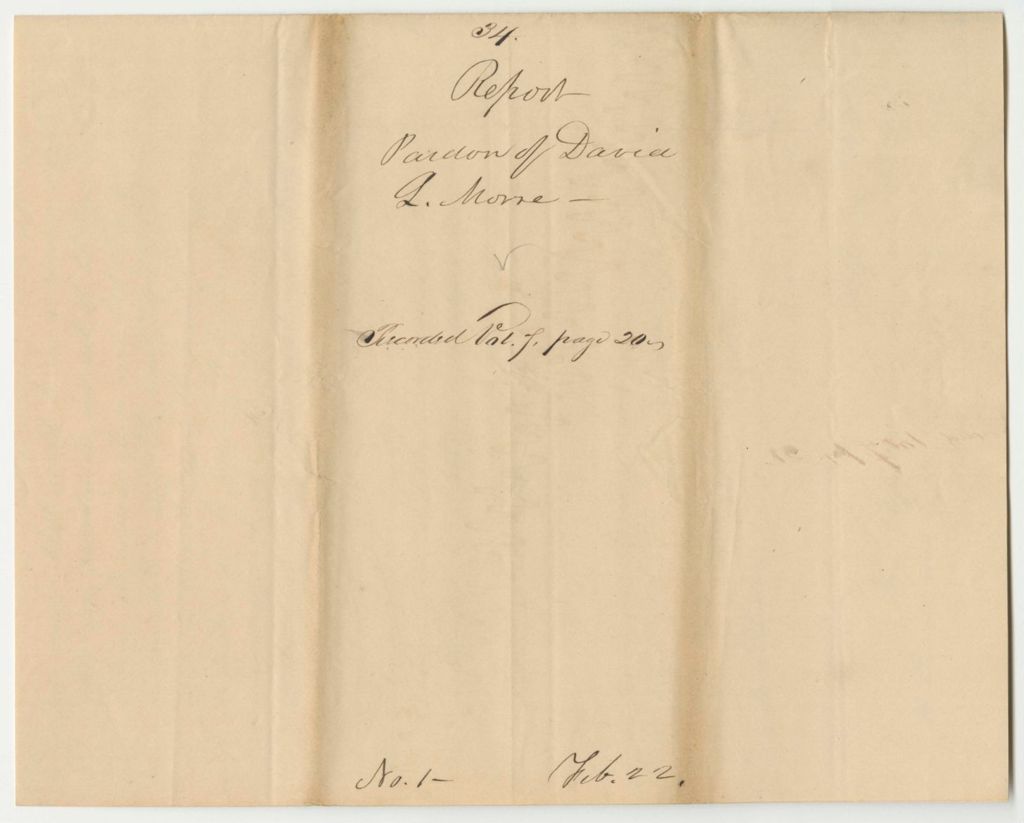 34.
Report
Pardon of David
L. Morse —
Recorded Vol. 7, page 20
No. 1—
Feb. 22.